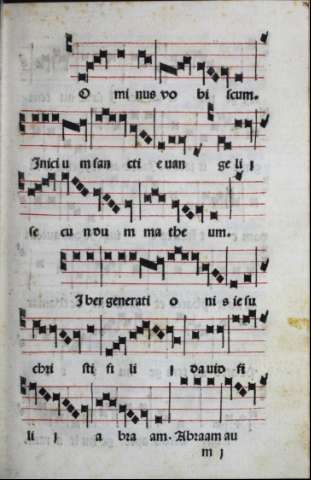 O mi nus vo bi scum.
Inici u m san cti e uan ge li j
se cu ndu m ma the um.
I ber generati o ni s ie su
chri sti fi li i da uid fi
li j a bra am. Abraam au
m j